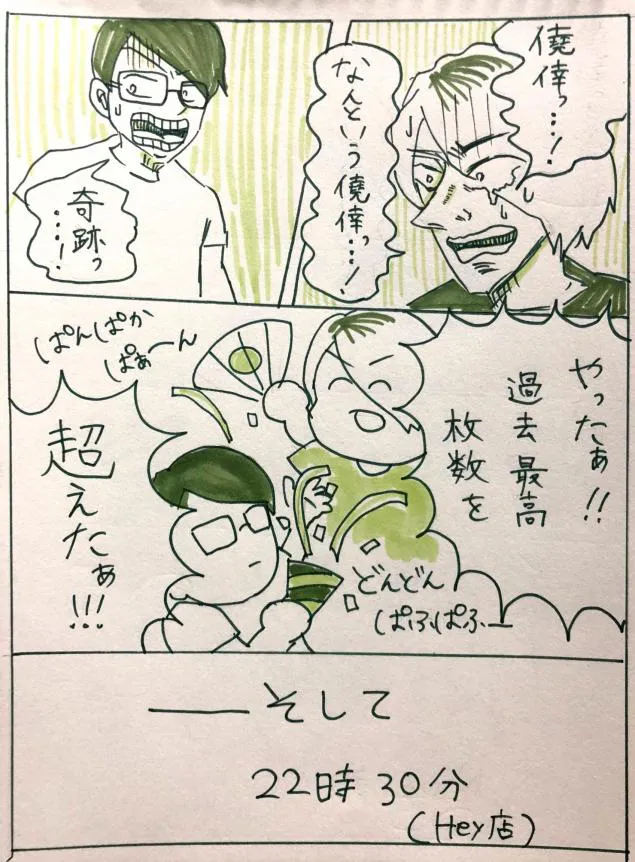 僥倖っ…!
なんという僥倖っ…!
奇跡っ…!
やったぁ!!
過去最高
枚数を
ぱんぱか
ぱぁーん
超えたぁ!!!
どんどん
ぱふぱふー
――そして
22時30分
(Hey店)